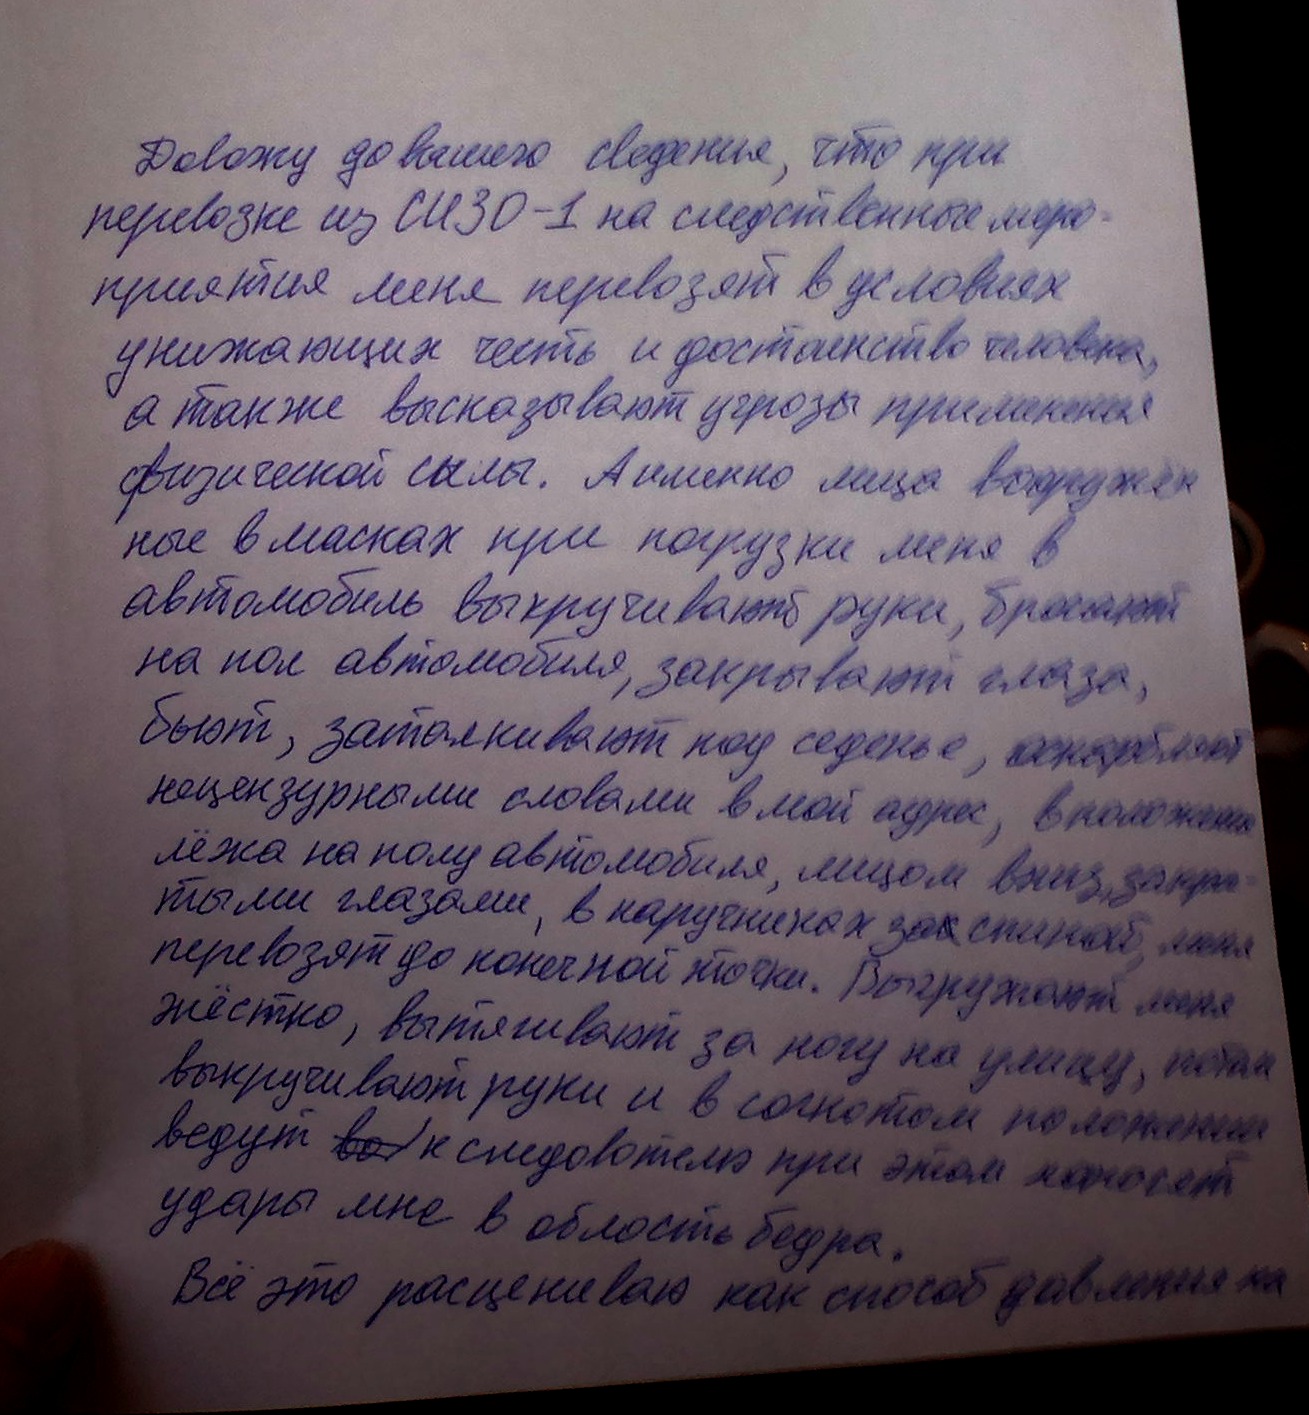 Довожу до вашего сведения, что при
перевозке из СИЗО-1 на следственные меро-
приятия меня перевозят в условиях
унижающих честь и достоинство человека,
а также высказывают угрозы применения
физической силы. А именно лица вооружён
ные в масках при погрузки меня в
автомобиль выкручивают руки, бросают
на пол автомобиля, закрывают глаза,
бьют, заталкивают под седенье, оскарбляют
нецензурными словами в мой адрес, в положении
лёжа на полу автомобиля, лицом вниз, закры-
тыми глазами, в наручниках за спиной, меня
перевозят до конечной точки. Выгружают меня
жёстко, вытягивают за ногу на улицу, потом
выкручивают руки и в согнотом положении
ведут к следователю при этом наносят
удары мне в область бедра.
Всё это расцениваю как способ давления на